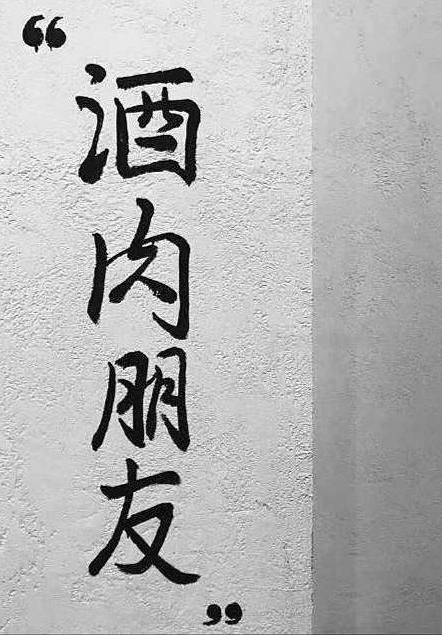 “酒肉朋友”